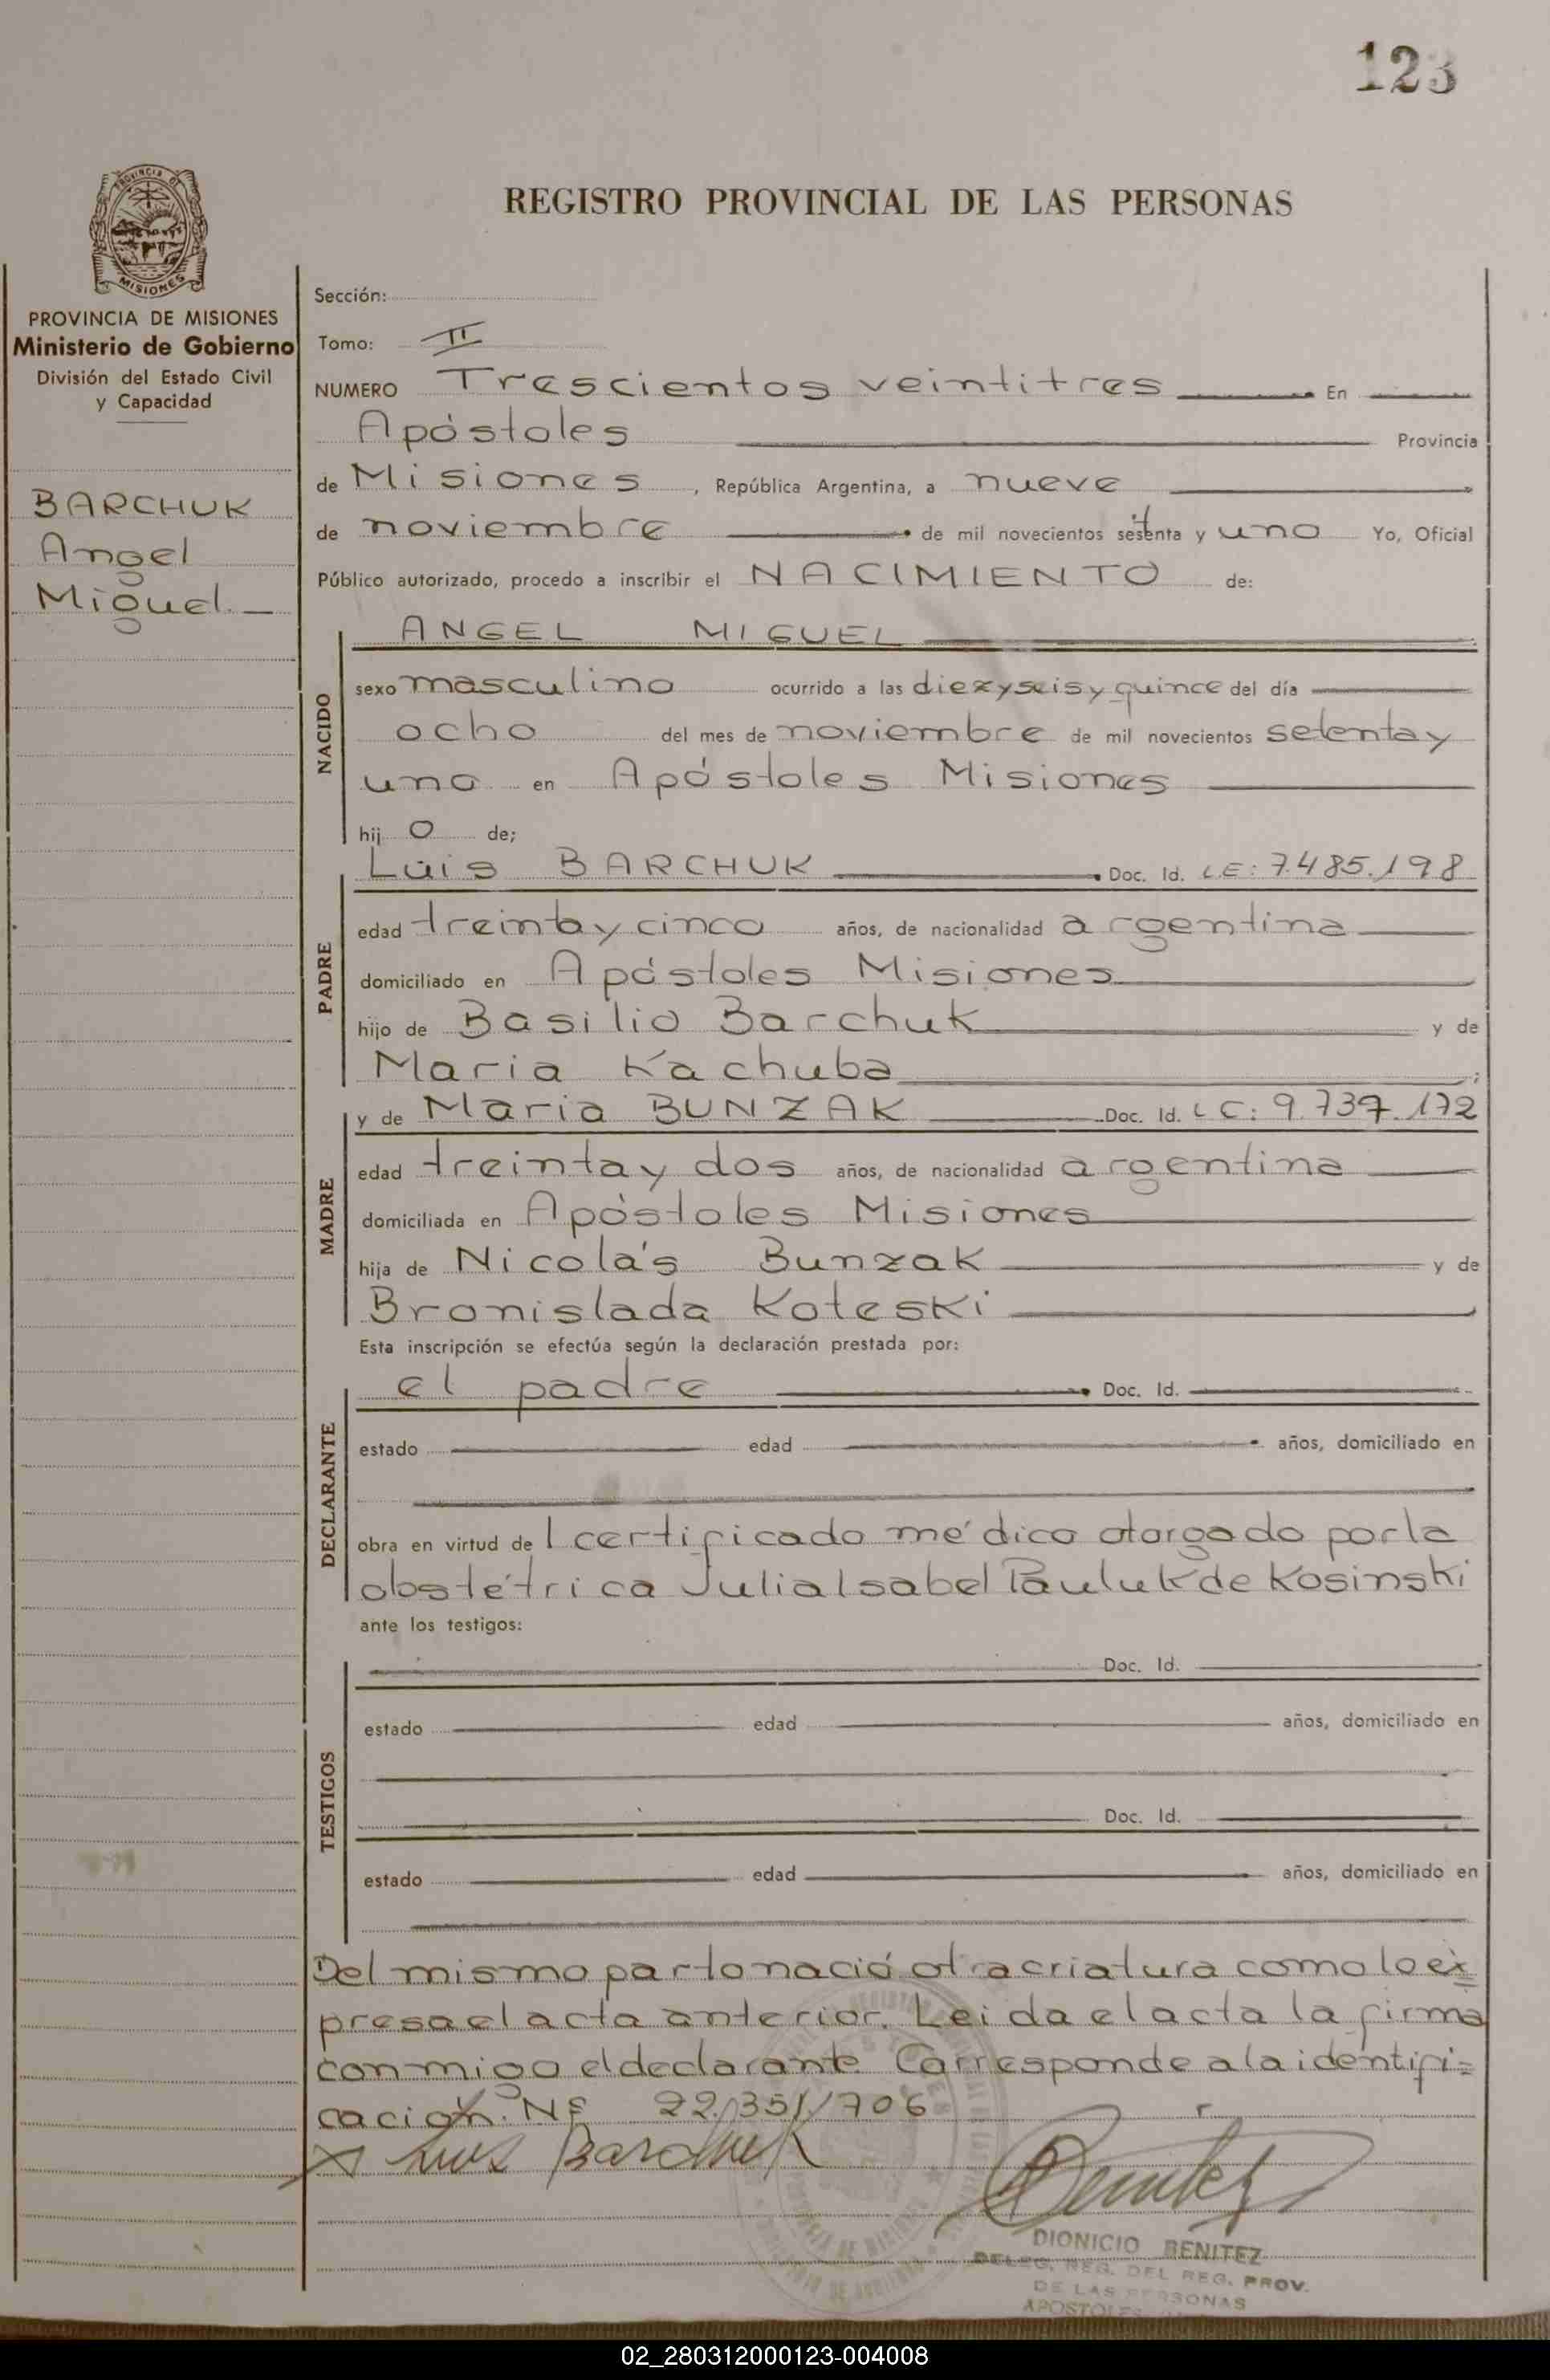 123
PROVINCIA DE
MISIONES
REGISTRO PROVINCIAL DE LAS PERSONAS
PROVINCIA DE MISIONES
Ministerio de Gobierno
División del Estado Civil
y Capacidad
BARCHUK
Angel
Miguel
Sección:
Tomo: II
NUMERO Trescientos veintitres En
Apóstoles Provincia
de Misiones, República Argentina, a nueve
de noviembre de mil novecientos setenta y uno Yo, Oficial
Público autorizado, procedo a inscribir el NACIMIENTO de:
NACIDO
ANGEL MIGUEL
sexo masculino ocurrido a las diezyseis y quince del día
ocho del mes de noviembre de mil novecientos setenta y
uno en Apóstoles Misiones
hij o de;
PADRE
Luis BARCHUK Doc. Id. LE: 7.485.198
edad treinta y cinco años, de nacionalidad argentina
domiciliado en Apóstoles Misiones
hijo de Basilio Barchuk y de
Maria Kachuba;
MADRE
y de Maria BUNZAK Doc. Id. LC: 9.737.172
edad treinta y dos años, de nacionalidad argentina
domiciliada en Apóstoles Misiones
hija de Nicolás Bunzak y de
Bronislada Koteski
Esta inscripción se efectúa según la declaración prestada por:
DECLARANTE
el padre Doc. Id.
estado edad años, domiciliado en
obra en virtud de l certificado médico otorgado por la
obstétrica Julia Isabel Pauluk de Kosinski
ante los testigos:
TESTIGOS
Doc. Id.
estado edad años, domiciliado en
Doc. Id.
estado edad años, domiciliado en
Del mismo parto nació otra criatura como lo ex=
presa el acta anterior. Leida el acta la firma
conmigo el declarante. Corresponde a la identifi=
cación. Nº 22/351/706
Luis Barchuk
Benitez
DIONICIO BENITEZ
DELEG. REG. DEL REG. PROV.
DE LAS PERSONAS
APOSTOLES
02_280312000123-004008